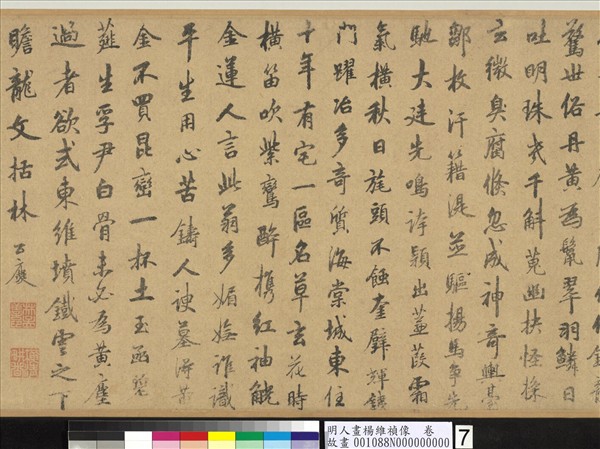 驚世俗丹黃為鬣翠羽鱗日
吐明珠光千斛蒐幽抉怪探
玄微臭腐倏忽成神奇輿臺
鄒枚汗籍混並驅揚馬爭先
馳大廷先鳴誇穎出蒹葭霜
氣橫秋日旄頭不蝕奎壁輝鏌
門躍冶多奇質海棠城東住
十年有宅一區名草玄花時
橫笛吹紫鸞醉携紅袖觥
金蓮人言此翁多媚嫵誰識
平生用心苦鑄人諛墓濟
金不買昆崙一杯土玉函
蕋生孚尹白骨未必為黃塵
過者欲式東維墳鐵雲之下
瞻龍文括林
明人畫楊維禎像 卷
故畫 001088N000000000
7